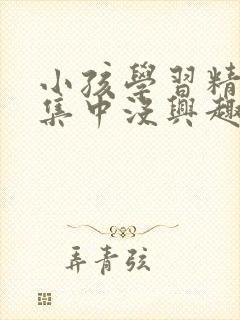 小孩學習精
集中沒興趣
弄青弦